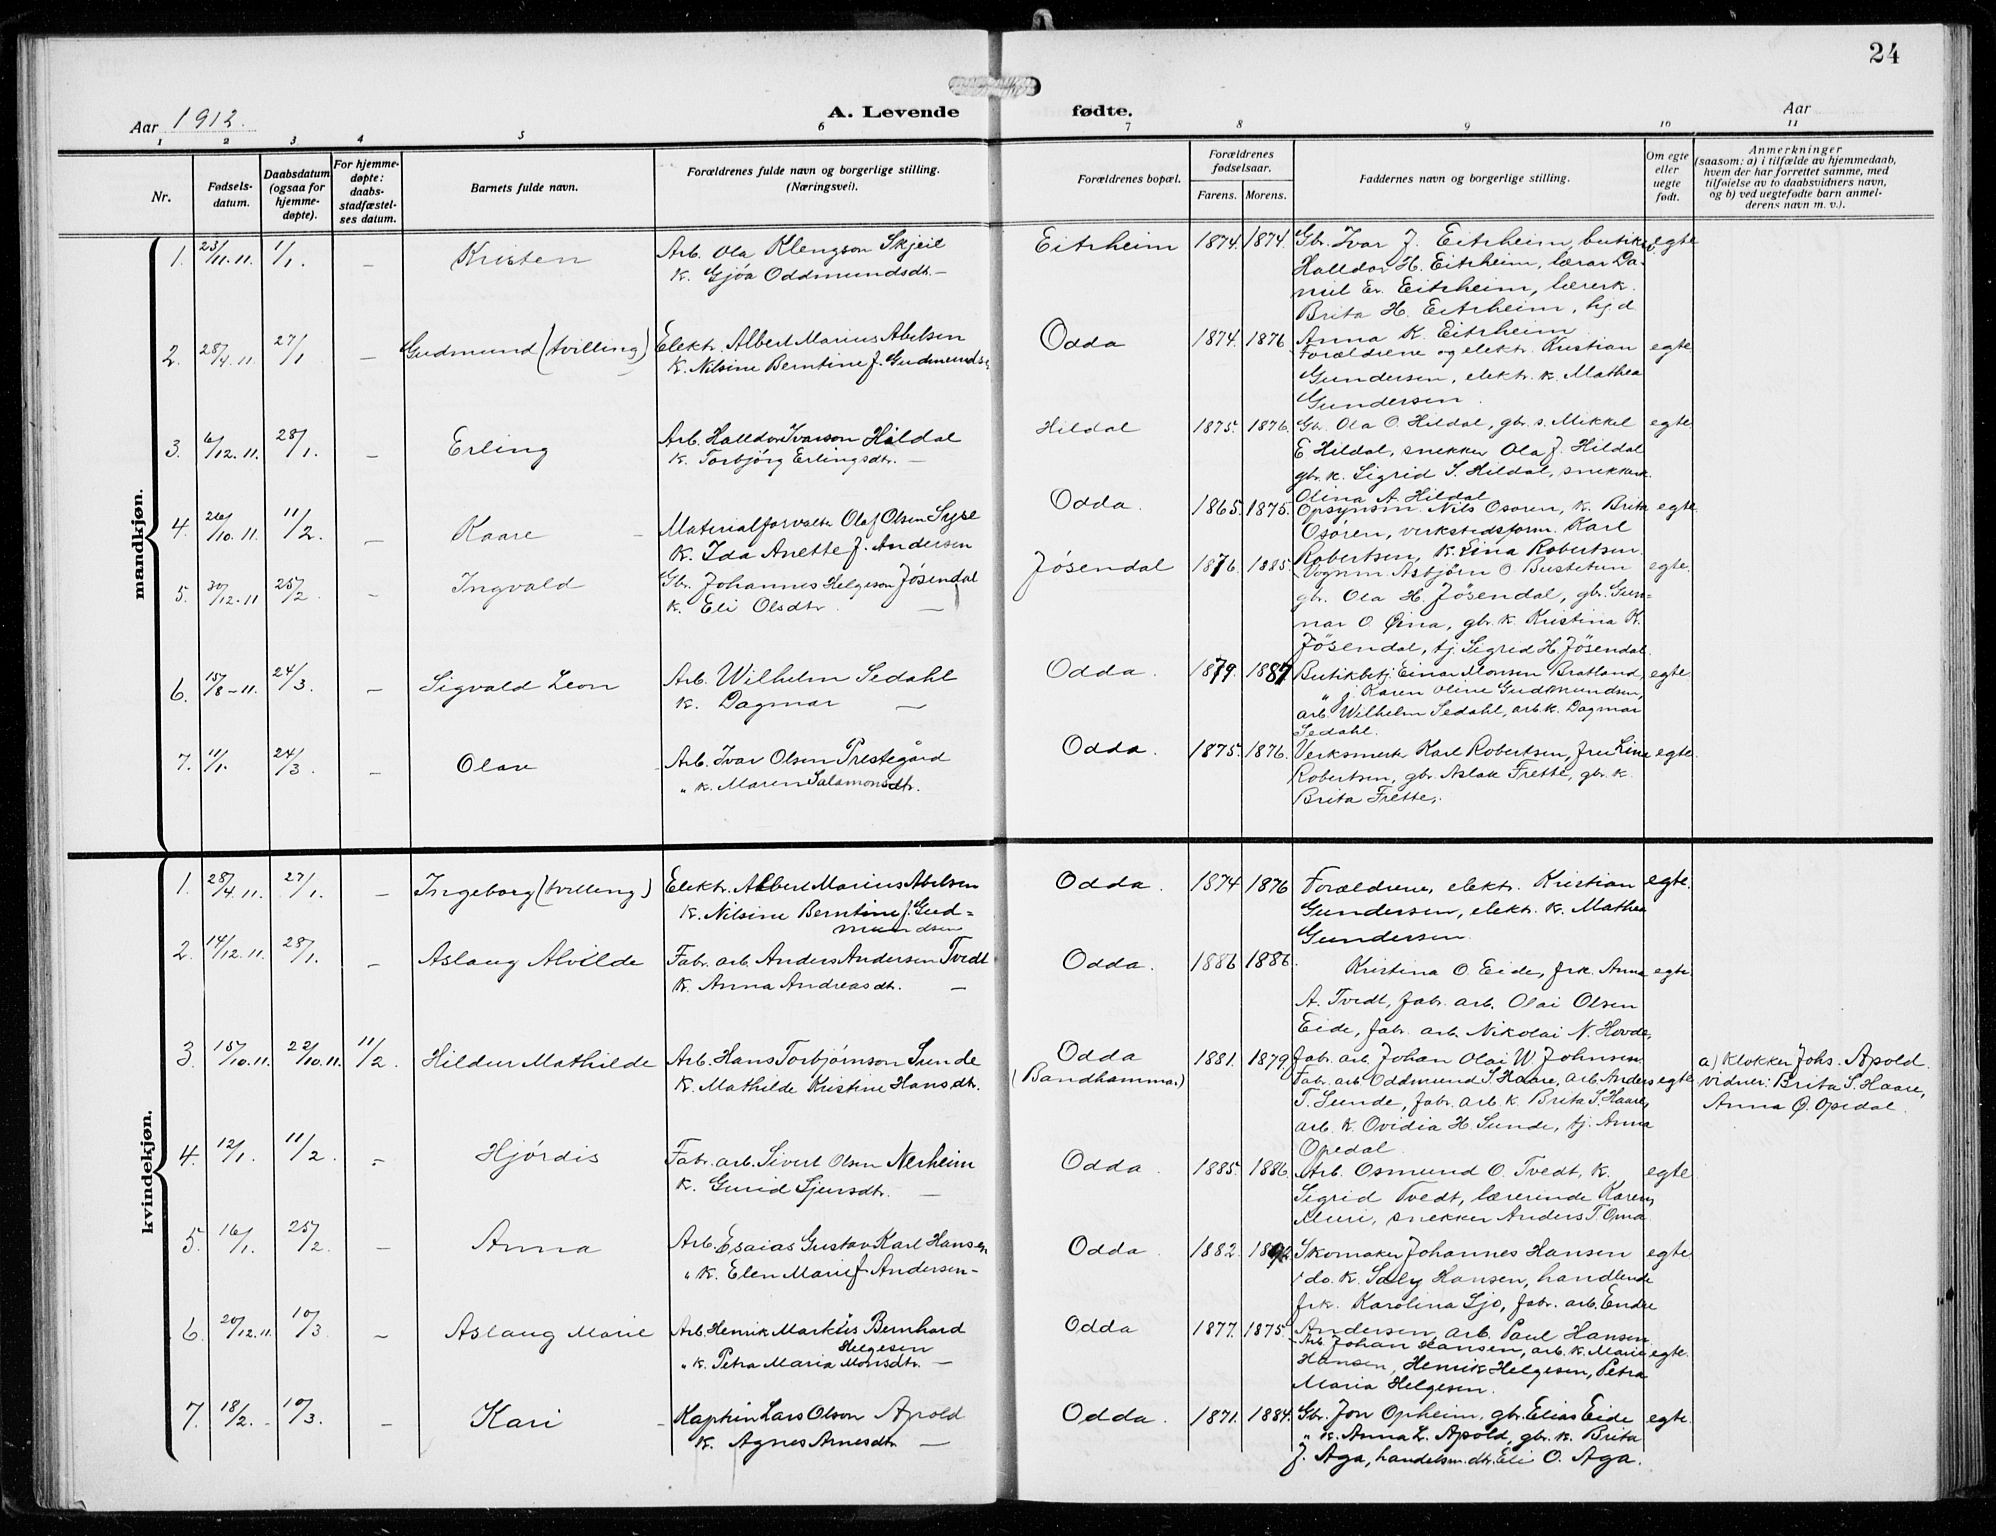 24
Aar 1912.
A. Levende fødte.
Aar
1 2 3 4 5 6 7 8 9 10 11
Nr.
Fødsels-
datum.
Daabsdatum
(ogsaa for
hjemme-
døpte).
For hjemme-
døpte:
daabs-
stadfæstel-
ses datum.
Barnets fulde navn.
Forældrenes fulde navn og borgerlige stilling.
(Næringsvei).
Forældrenes bopæl.
Forældrenes
fødselsaar.
Farens. Morens.
Faddernes navn og borgerlige stilling.
Om egte
eller
uegte
født.
Anmerkninger
(saasom: a) i tilfælde av hjemmedaab,
hvem der har forrettet samme, med
tilføielse av to daabsvidners navn,
og b) ved uegtefødte barn anmel-
derens navn m. v.).
mandkjøn.
1. 23/11.11. 1/1. — Kristen
Arb. Ola Klengson Skjeil
K. Gjöa Oddmundsdt. —
Eitrheim 1874. 1874.
Gbr. Ivar J. Eitrheim, butikk egte
Halldor H. Eitrheim, lærar Da-
niel Er. Eitrheim, lærerk.
Brita H. Eitrheim, hjd
Anna K. Eitrheim
2. 28/4.11. 27/1 — Gudmund (tvilling)
Elektr. Albert Marius Abelsen
K. Nilsine Berntine f. Gudmunds.
Odda 1874. 1876
Forældrene og elektr. Kristian egte
Gundersen, elektr. k. Mathea
Gundersen.
3. 6/12.11. 28/1. — Erling
Arb. Halldor Ivarson Hildal
K. Torbjörg Erlingsdtr. —
Hildal 1875. 1876.
Gbr. Ola O. Hildal, gbr. s. Mikkel egte
E Hildal, snekker Ola J. Hildal
gbr. k. Sigrid S. Hildal, snekkerk
Olina A. Hildal
4. 26/10.11. 11/2. — Kaare
Materialforvalte Olaf Olsen Syse
K. Ida Anette f. Andersen
Odda. 1865. 1875.
Opsynsm. Nils Osøren, k. Brita egte
Osøren, verkstedsform. Karl
Robertsen, k. Lina Robertsen.
5. 30/12.11 25/2. — Ingvald
Gbr. Johannes Helgeson Jösendal
K. Eli Olsdtr. —
Jösendal 1876. 1885.
Vognm. Asbjörn O. Bustetun egte.
gbr. Ola H. Jösendal, gbr. Gun-
nar O. Øina, gbr. k. Kristina K.
Jösendal, tj. Sigrid H. Jösendal.
6. 15/8-11. 24/3. — Sigvald Leon
Arb. Wilhelm Sedahl
K. Dagmar —
Odda. 1879. 1887
Butikbetj. Einar Monsen Bratland, egte
" j. Karen Oline Gudmundsen,
arb. Wilhelm Sedahl, arb. k. Dagmar
Sedahl.
7. 11/1. 24/3. — Olav
Arb. Ivar Olsen Prestegård
" k. Maren Salamonsdtr.
Odda. 1875. 1876.
Verksmestr. Karl Robertsen, fru Lina egte
Robertsen, gbr. Aslak Frette, gbr. k.
Brita Frette,
kvindekjøn.
1. 28/4.11. 27/1. — Ingeborg (tvilling)
Elektr. Albert Marius Abelsen
K. Nilsine Berntine f. Gud=
mundsen
Odda. 1874 1876
Forældrene, elektr. Kristian egte.
Gundersen, elekt. k. Mathea
Gundersen.
2. 14/12.11. 28/1. — Aslaug Alvilde
Fabr. arb. Anders Andersen Tvedt
K. Anna Andreasdtr. —
Odda. 1886 1886.
Kristina O. Eide, frk. Anna egte.
A. Tvedt, fabr. arb. Olai Olsen
Eide, fabr. arb. Nikolai N. Hovde,
3. 15/10.11. 22/10.11. 11/2. Hildur Mathilde
Arb. Hans Torbjørnson Sunde
K. Mathilde Kristine Hansdtr.
Odda
(Bandhammar) 1881. 1879.
Fabr. arb. Johan Olai W. Johnsen
Fabr. arb. Oddmund S. Haare, arb. Anders egte
T. Sunde, fabr. arb. k. Brita S. Haare,
arb. k. Ovidia H. Sunde, tj. Anna
Opedal.
a) Klokker Johs. Apold.
Vidner: Brita S. Haare,
Anna Ø. Opedal.
4. 12/1. 11/2. — Hjördis
Fabr. arb. Sivert Olsen Nerheim
K. Gurid Sjursdtr. —
Odda. 1885. 1886.
Arb. Osmund O. Tvedt, k. egte
Sigrid Tvedt, lærerinde Karen
Muri, snekker Anders T. Oma.
5. 16/1. 25/2. — Anna
Arb. Esaias Gustav Karl Hansen
" k. Elen Marie f. Andersen —
Odda. 1882. 1892
Skomaker Johannes Hansen egte
do. k. Saly Hansen, handlende
frk. Karolina Sjo, fabr. arb. Endre
Andersen, arb. Paul Hansen
6. 20/12.11. 10/3. — Aslaug Marie
Arb. Henrik Markus Bernhard
Helgesen
" k. Petra Maria Monsdtr. —
Odda 1877. 1875.
Arb. Johan Hansen, arb. k. Marie egte.
Hansen, Henrik Helgesen, Petra
Maria Helgesen.
7. 18/2. 10/3. — Kari
Kaptein Lars Olson Apold
K. Agnes Arnesdtr. —
Odda. 1871. 1884.
Gbr. Jon Opheim, gbr. Elias Eide egte.
" k. Anna L. Apold, gbr. k. Brita
J. Aga, handelsm. dtr. Eli O. Aga.